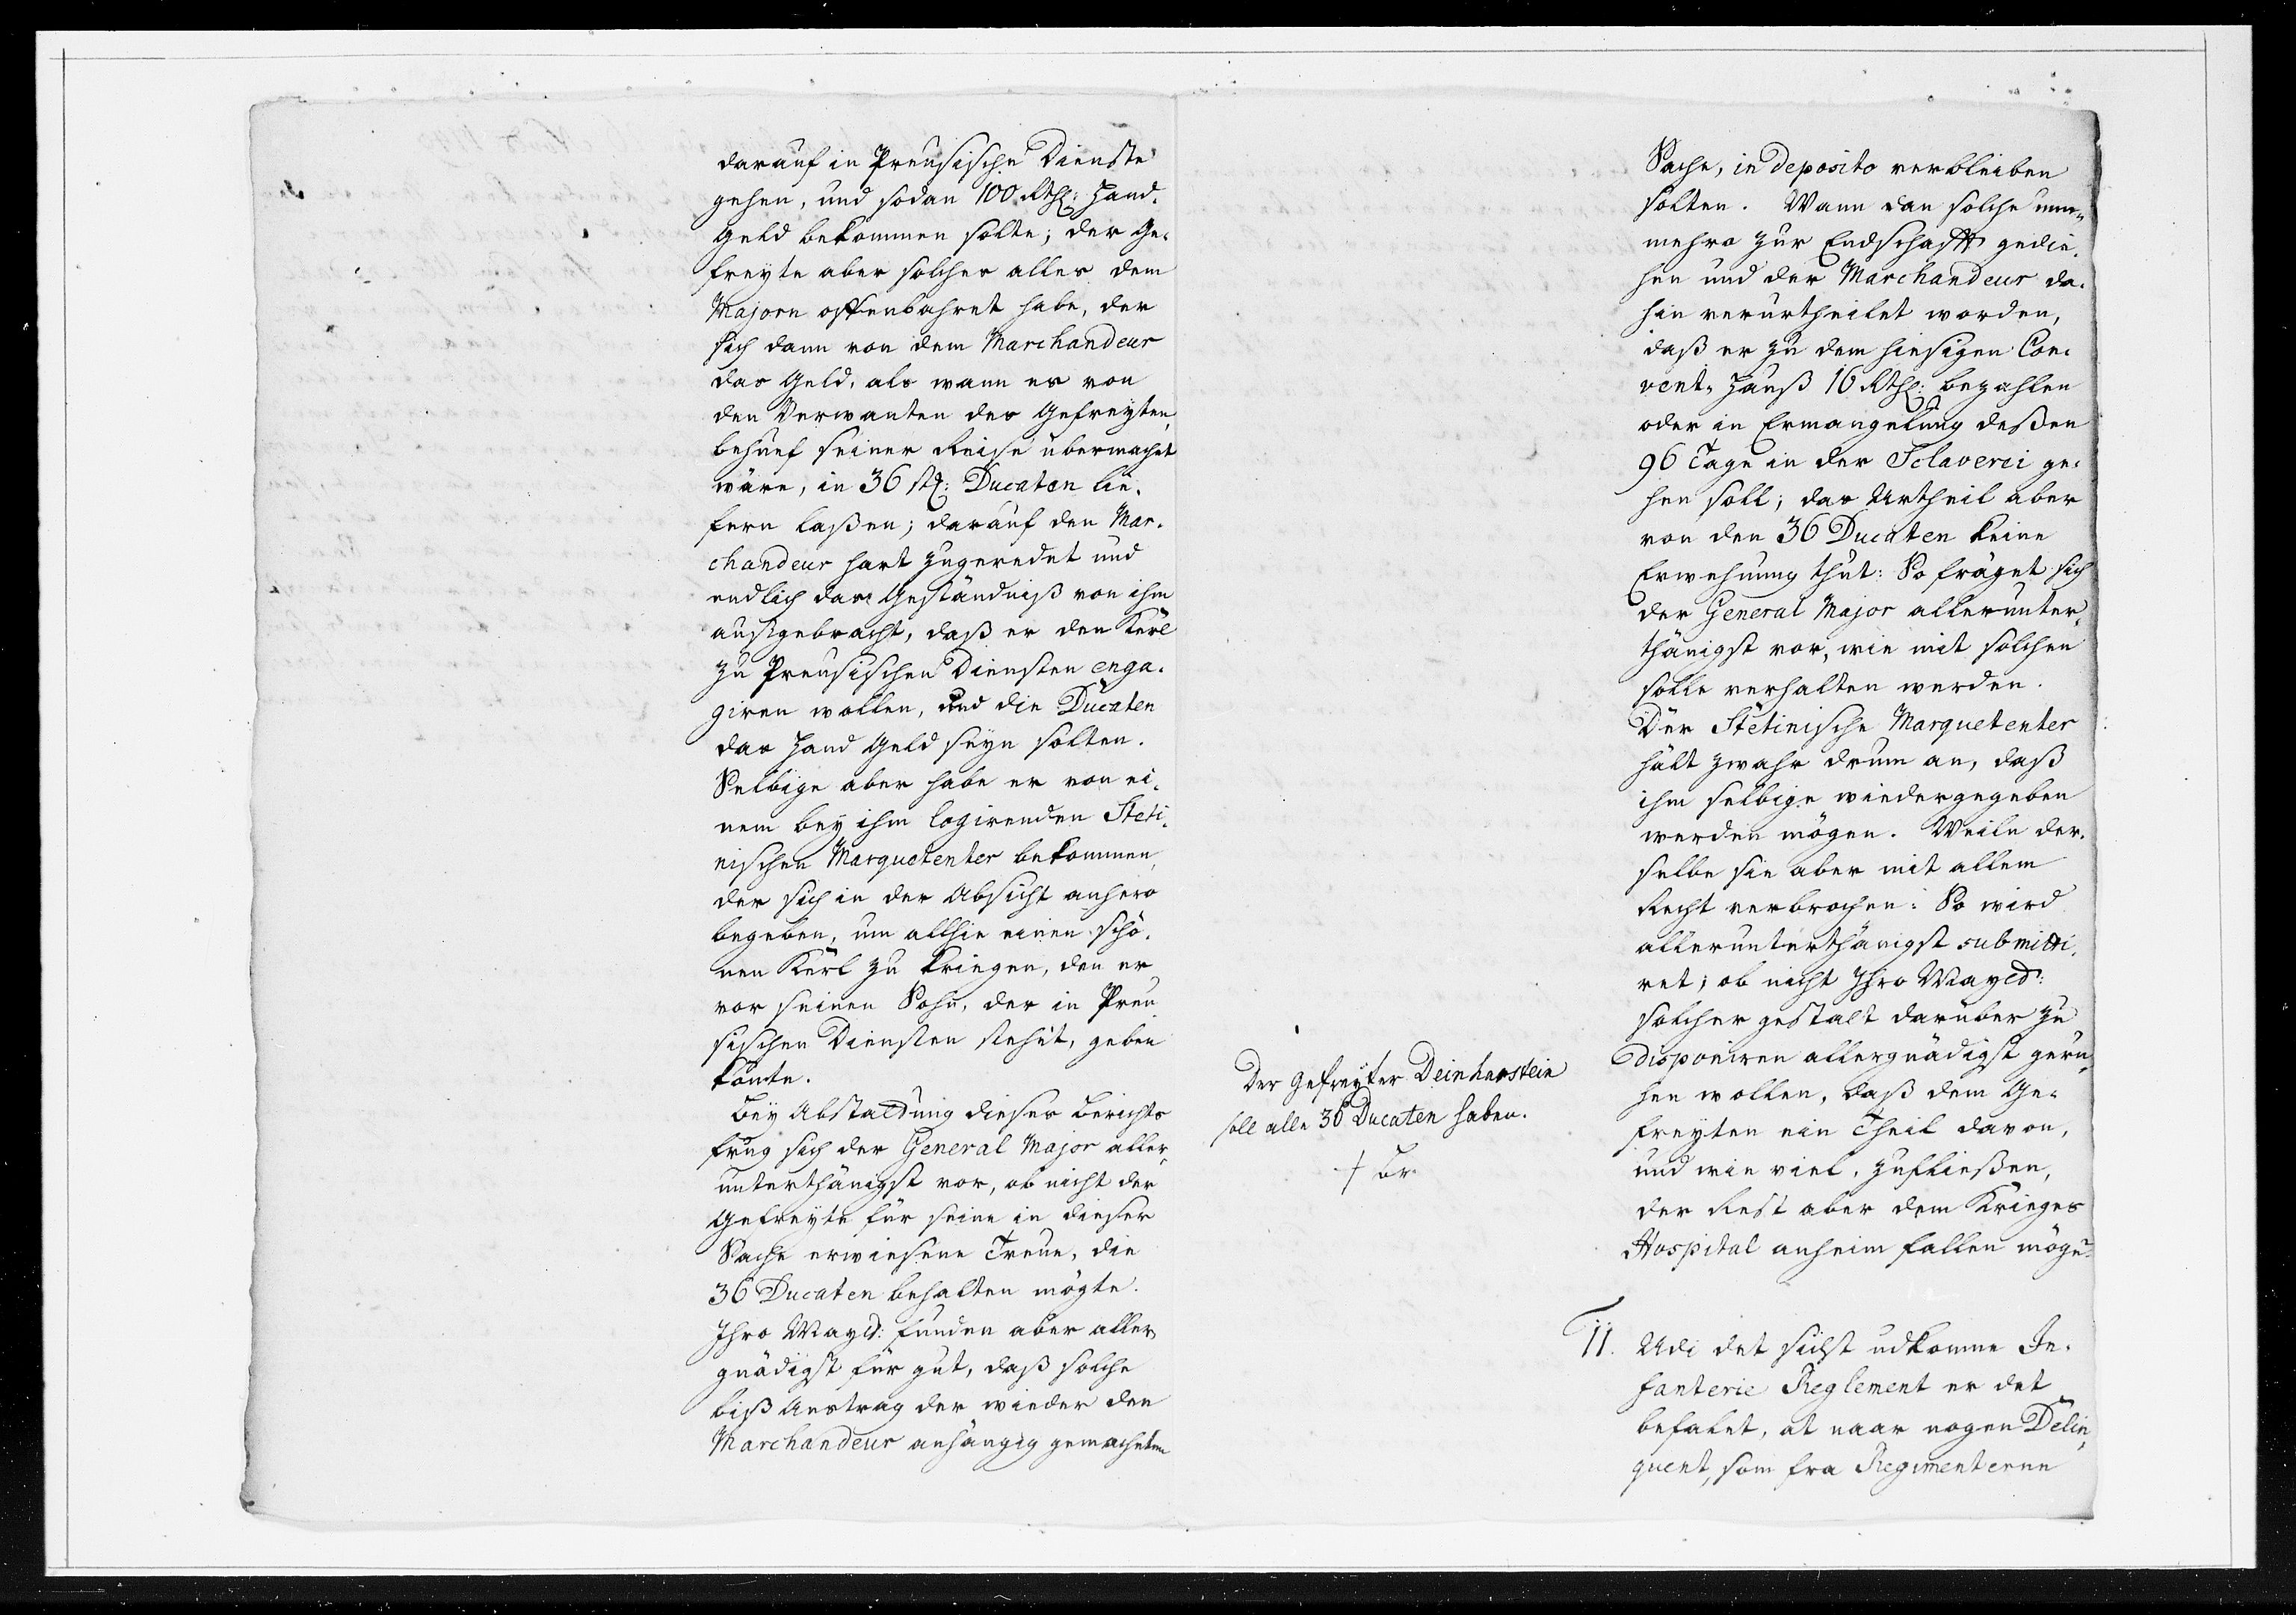 darauf in Preusische Dienste
gehen, und sodan 100 Rthl: Hand-
Geld bekommen solte; der Ge-
freyte aber solches alles dem
Majorn offenbahret habe, der
sich dann von dem Marchandeur
das Geld, als wann es von
den Verwanten des Gefreyten,
behuef seiner Reise übermacht
wäre, in 36 st: Ducaten lie-
fern laßen; darauf den Mar-
chandeur hart zugeredet und
endlich das Geständniß von ihm
ausgebracht, daß er den Kerl
zu Preusischen Diensten enga-
giren wollen, und die Ducaten
das Hand Geld seyn solten.
Selbige aber habe er von ei-
nem bey ihm logirenden Steti-
nischen Marquetenter bekommen,
der sich in der Absicht anhero
begeben, um allhie einen schö-
nen Kerl zu kriegen, den er
vor seinen Sohn, der in Preu-
sischen Diensten stehet, geben
könte.
Bey Abstattung dieses Berichts
frug sich der General Major aller-
unterthänigst vor, ob nicht der
Gefreyte für seine in dieser
Sache erwiesene Treue, die
36 Ducaten behalten mögte.
Ihro Mayt: funden aber aller-
gnädigst für gut, daß solche
biß Austrag der wieder den
Marchandeur anhängig gemachten
Der Gefreyter Deinhastein
soll alle 36 Ducaten haben.
Sache, in deposito verbleiben
solten. Wann dan solche nun-
mehro zur Endschafft gedie-
hen und der Marchandeur da-
hin verurtheilet worden,
daß er zu dem hiesigen Con-
vent-Hauß 16 Rthl: bezahlen
oder in Ermangelung deßen
96 Tage in der Sclaverei ge-
hen soll; das Urtheil aber
von den 36 Ducaten keine
Erwehnung thut: So fräget sich
der General Major allerunter-
thänigst vor, wie mit solchen
solle verhalten werden.
Der Stetinische Marquetenter
hält zwahr drum an, daß
ihm selbige wiedergegeben
werden mögen. Weile der-
selbe sie aber mit allem
Recht verbrochen: So wird
allerunterthänigst submitti-
ret; ob nicht Ihro Mayt:
solcher gestalt darüber zu
disponiren allergnädigst geru-
hen wollen, daß dem Ge-
freyten ein Theil davon,
und wie viel, zufließen,
der Rest aber dem Krieges
Hospital anheim fallen möge.
11. Udi det sidst udkomne In-
fanterie Reglement er det
befalet, at naar nogen Delin-
quent, som fra Regimenterne